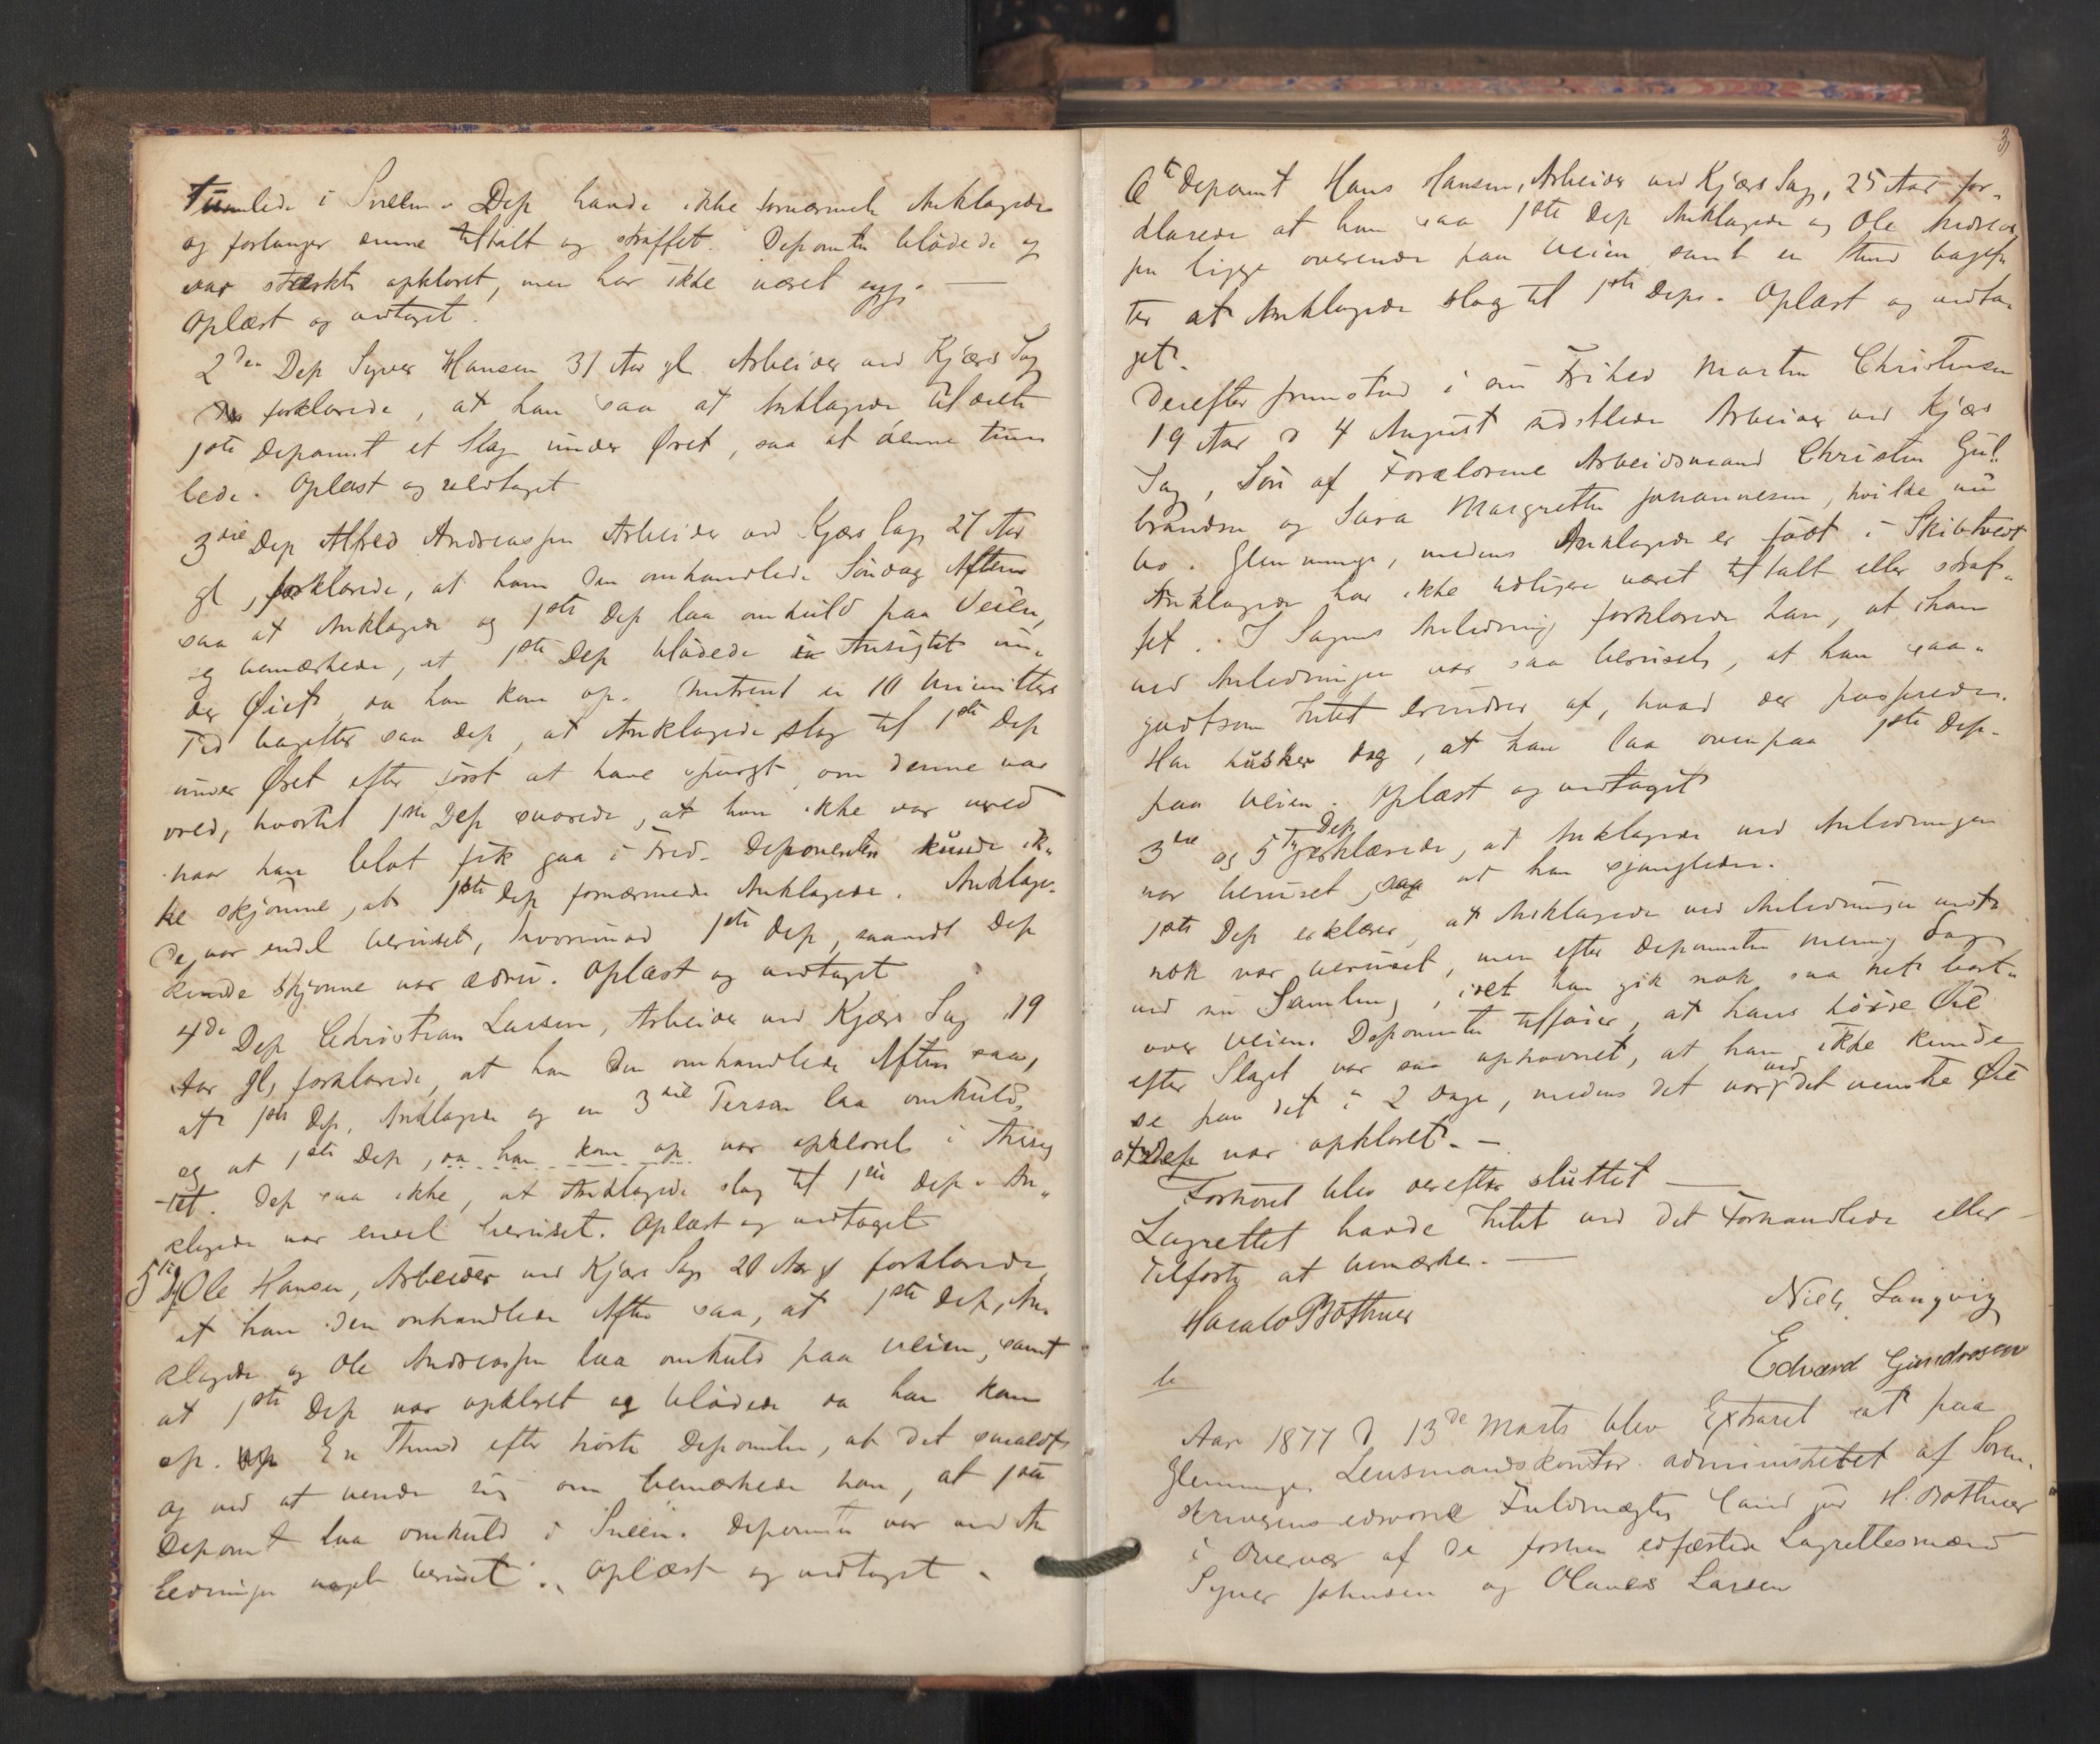 Tumlede i Sneen. Dep havde ikke fornærmede Anklagede
og forlanger denne tiltalt og straffet. Deponenten blødede og
var stærkt opkloret, men har ikke været syg. —
Oplæst og vedtaget.
2den Dep Syver Hansen 31 Aar gl. Arbeider ved Kjærs Sag
forklarede, at han saa at Anklagede tildelte
1ste Deponent et Slag under Øret, saa at denne tum
lede. Oplæst og vedtaget
3die Dep Alfred Andreassen Arbeider ved Kjærs Sag 27 Aar
gl, forklarede, at han den omhandlede Søndag Aften
saa at Anklagede og 1ste Dep laa omkuld paa Veien,
og bemærkede, at 1ste Dep blødede i Ansigtet un-
der Øiet, da han kom op. Omtrent en 10 Minutters
Tid bagefter saa Dep, at Anklagede slog til 1ste Dep
under Øret efter først at have spurgt, om denne var
vred, hvortil 1ste Dep svarede, at han ikke var vred
naar han blot fik gaa i Fred. Deponenten kunde ik-
ke skjønne, at 1ste Dep fornærmede Anklagede. Anklage-
de var endel beruset, hvorimod 1ste Dep, saavidt Dep
kunde skjønne var ædru. Oplæst og vedtaget
4de Dep Christian Larsen, Arbeider ved Kjærs Sag 19
Aar gl, forklarede, at han den omhandlede Aften saa,
at 1ste Dep, Anklagede og en 3die Person laa omkuld,
og at 1ste Dep, da han kom op var opkloret i Ansig
tet. Dep saa ikke, at Anklagede slog til 1ste Dep. An-
klagede var endel beruset. Oplæst og vedtaget
5te Dp Ole Hansen, Arbeider ved Kjærs Sag 20 Aar gl forklarede,
at han den omhandlede Aften saa, at 1ste Dep, An-
klagede og Ole Andreassen laa omkuld paa Veien, samt
at 1ste Dep var opkloret og blødede da han kom
op. En Stund efter hørte Deponenten, at det smaldt
og ved at vende sig om bemærkede han, at 1ste
Deponent laa omkuld i Sneen. Deponenten var ved An
ledningen noget beruset. Oplæst og vedtaget.
3
6te Deponent Hans Hansen, Arbeider ved Kjærs Sag, 25 Aar for-
klarede at han saa 1ste Dep Anklagede og Ole Andreas
sen ligge overende paa Veien samt en Stund bagef
ter at Anklagede slog til 1ste Dep. Oplæst og vedta-
get.
Derefter fremstod i sin Frihed Martin Christensen
19 Aar d 4 August sidstleden Arbeider ved Kjærs
Sag, Søn af Forældrene Arbeidsmand Christen Gul-
brandsen og Sara Margrethe Johannesen, hvilke nu
bo i Glemminge, medens Anklagede er født i Skibtvedt
Anklagede har ikke tidligere været tiltalt eller straf-
fet. I Sagens Anledning forklarede han, at han
ved Anledningen var saa beruset, at han saa-
godtsom Intet erindrer af, hvad der passerede.
Han husker dog, at han laa ovenpaa 1ste Dep.
paa Veien. Oplæst og vedtaget
3die og 5te Dep forklarede, at Anklagede ved Anledningen
var beruset, saa at han sjanglede.
1ste Dep erklærer, at Anklagede ved Anledningen vist
nok var beruset, men efter Deponentens Mening dog
ved sin Samling, idet han gik nok saa net bort-
over Veien. Deponenten tilføier, at hans høire Øie
efter Slaget var saa ophovnet, at han ikke kunde
se paa det i 2 Dage, medens det var ved det venstre Øie
at Dep var opkloret. —
Forhøret blev derefter sluttet —
Lagrettet havde Intet ved det Forhandlede eller
Tilførte at bemærke. —
Harald Bothner
Niels Langvig
Edvard Gundrosen
Aar 1877 d 13de Marts blev Extraret sat paa
Glemminge Lensmandskontor administreret af Soren-
skriverens edsvorne Fuldmægtig Cand jur H. Bothner
i Overvær af de forhen edfæstede Lagrettesmænd
Syver Johnsen og Olaves Larsen